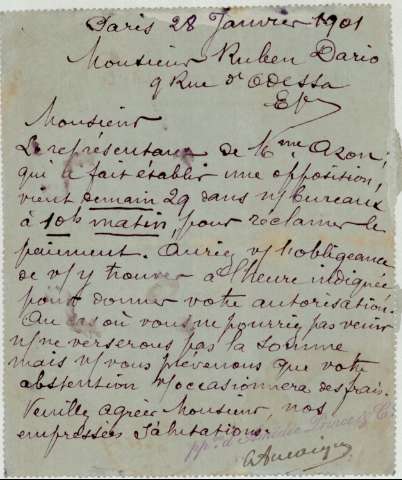 Paris 28 Janvier 1901
Monsieur Ruben Dario
9 Rue d'Odessa
E/V
Monsieur
Le représentant de Mme Azon,
qui a fait établir une opposition,
vient demain 29 dans n/ bureaux
à 10h matin, pour réclamer le
paiement. Auriez v/ l'obligeance
de v/ y trouver à l'heure indiquée
pour donner votre autorisation.
Au cas où vous ne pourriez pas venir
n/ ne verserons pas la somme
mais n/ vous prévenons que votre
abstention v/ occasionnera des frais.
Veuillez agréer Monsieur, nos
empressées salutations.